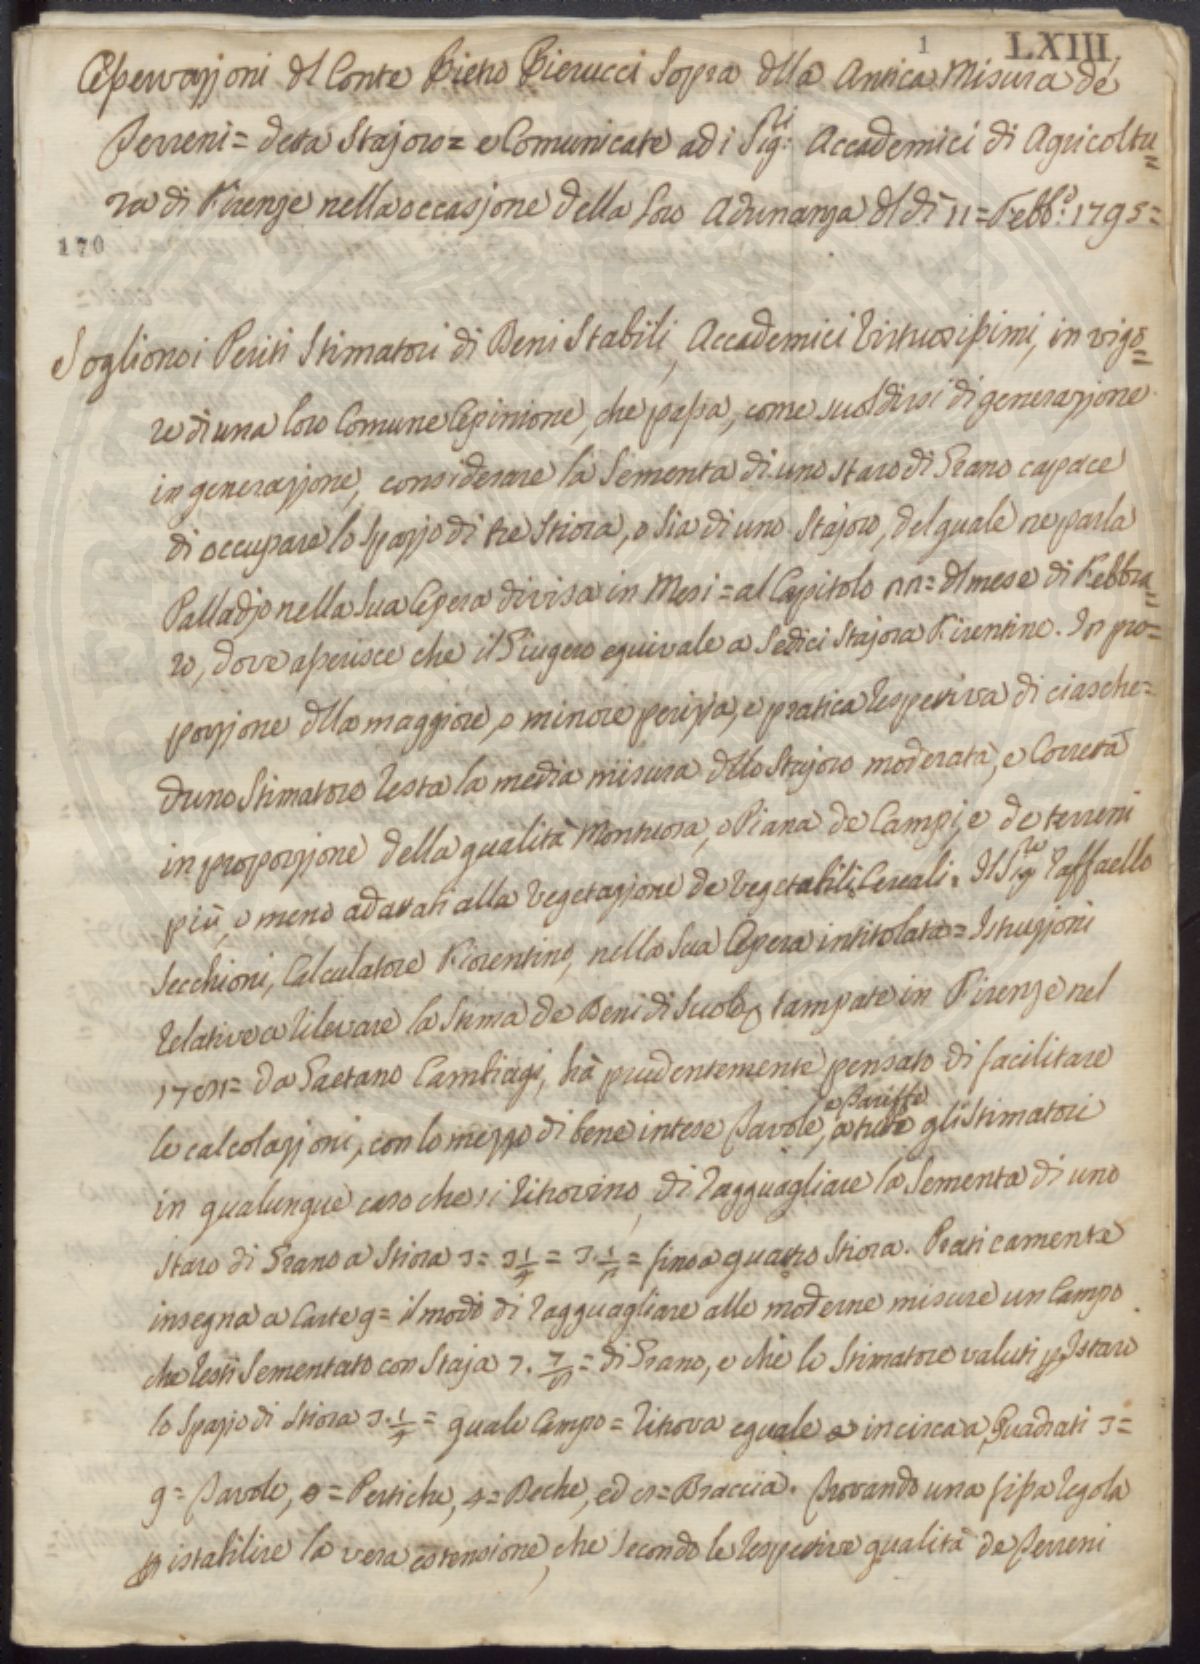 1 LXIII
Osservazzioni del Conte Pietro Pierucci Sopra della Antica Misura de
Terreni = detta Stajoro = e Comunicate ad i Sig:ri Accademici di Agricoltu=
ra di Firenze nella occasjone della Loro Adunanza del dì 11 = Febb:o 1795 =
170
Sogliono i Periti Stimatori di Beni Stabili, Accademici Virtuosissimi, in vigo=
re di una loro Comune Opinione, che passa, come suol dirsi di generazzione
in generazzione, considerare la Sementa di uno staro di Grano capace
di occupare lo spazzo di tre Stiora, o sia di uno Stajoro, del quale ne parla
Palladjo nella Sua Opera divisa in Mesi = al Capitolo = del mese di Febbra=
ro, dove asserisce che il Giugero equivale a Sedici Stajora Fiorentine. In pro=
porzjone della maggiore, o minore perizia, e pratica respettiva di ciasche=
duno Stimatore resta la media misura dello Stajoro moderata, e Corretta
in proporzjone della qualità Montuosa, o Piana de Campi, e de terreni
più, o meno adattati alla Vegetazjone de Vegetabili Cereali. Il Sig:re Raffaello
Secchioni, Calculatore Fiorentino, nella Sua Opera intitolata = Istruzjoni
relative a rilevare la Stima de Beni di Suolo, stampate in Firenze nel
= da Gaetano Cambiagi, hà prudentemente pensato di facilitare
le calcolazzioni, con lo mezzo di bene intese Tavole, e Tariffe a tutti gli Stimatori
in qualunque caso che si ritrovino, di ragguagliare la Sementa di uno
staro di Grano a Stiora 3 = 3 1/4 = 3. 1/2 = fino a quattro Stiora. Praticamente
insegna a Carte 9 = il modo di ragguagliare alle moderne misure un Campo
che resti Sementato con Staja 7. = di Grano, e che lo Stimatore valuti p Istaro
lo spazjo di Stiora 3. = quale Campo = ritrova eguale a incirca a Quadrati 3 =
9 = Tavole, = Pertiche, 4 = Deche, ed = Braccia. Trovando una fissa regola
p istabilire la vera estensione, che secondo le respettive qualità de Terreni